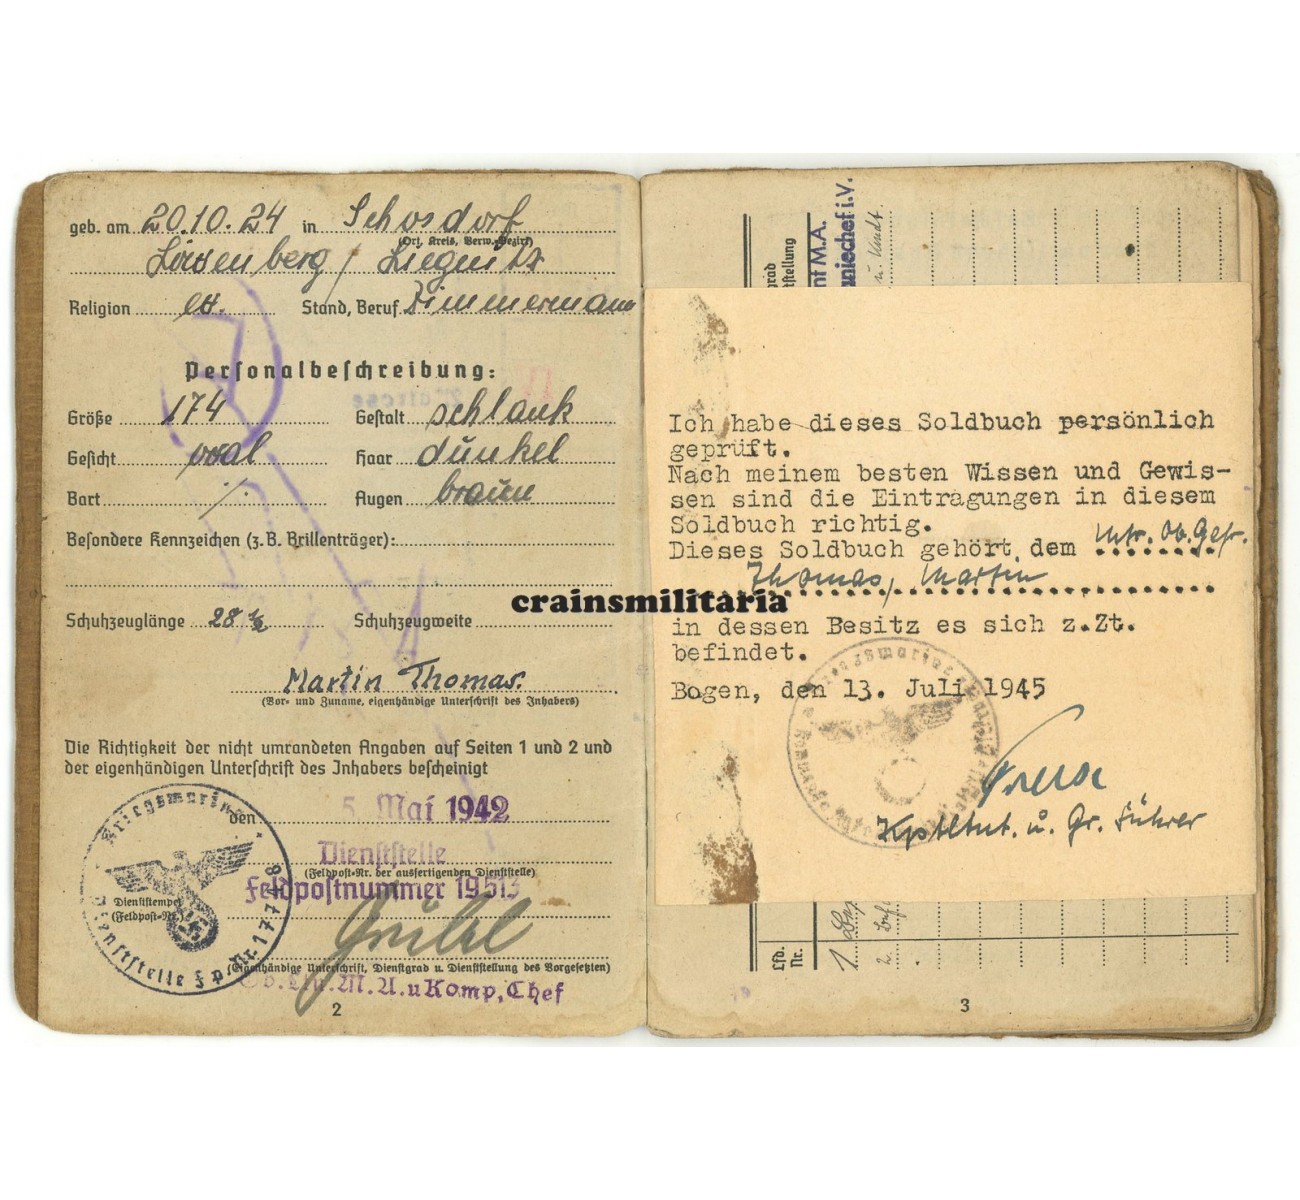 geb. am 20.10.24 in Schosdorf
(Ort, Kreis, Verw.-Bezirk)
Löwenberg / Liegnitz
Religion ev. Stand, Beruf Zimmermann
Personalbeschreibung:
Größe 174 Gestalt schlank
Gesicht oval Haar dunkel
Bart ./. Augen braun
Besondere Kennzeichen (z.B. Brillenträger):
Schuhzeuglänge 28 ½ Schuhzeugweite
Martin Thomas.
(Vor- und Zuname, eigenhändige Unterschrift des Inhabers)
Die Richtigkeit der nicht umrandeten Angaben auf Seiten 1 und 2 und
der eigenhändigen Unterschrift des Inhabers bescheinigt
den 5. Mai 1942
Dienststelle
(Feldpost-Nr. der ausfertigenden Dienststelle)
Feldpostnummer 19513
Kriegsmarine
Dienststelle F.p.Nr. 17748
Dienststempel
(Feldpost-Nr.)
(Eigenhändige Unterschrift, Dienstgrad u. Dienststellung des Vorgesetzten)
M.A.u Komp, Chef
2
nt M.A.
niechef i.V.
Ich habe dieses Soldbuch persönlich
geprüft.
Nach meinem besten Wissen und Gewis-
sen sind die Eintragungen in diesem
Soldbuch richtig.
Dieses Soldbuch gehört dem Mtr. Ob. Gefr.
Thomas, Martin
crainsmilitaria
in dessen Besitz es sich z.Zt.
befindet.
Bogen, den 13. Juli 1945
Kptltnt. u. Gr. Führer
Lfd.
Nr.
1
2.
3